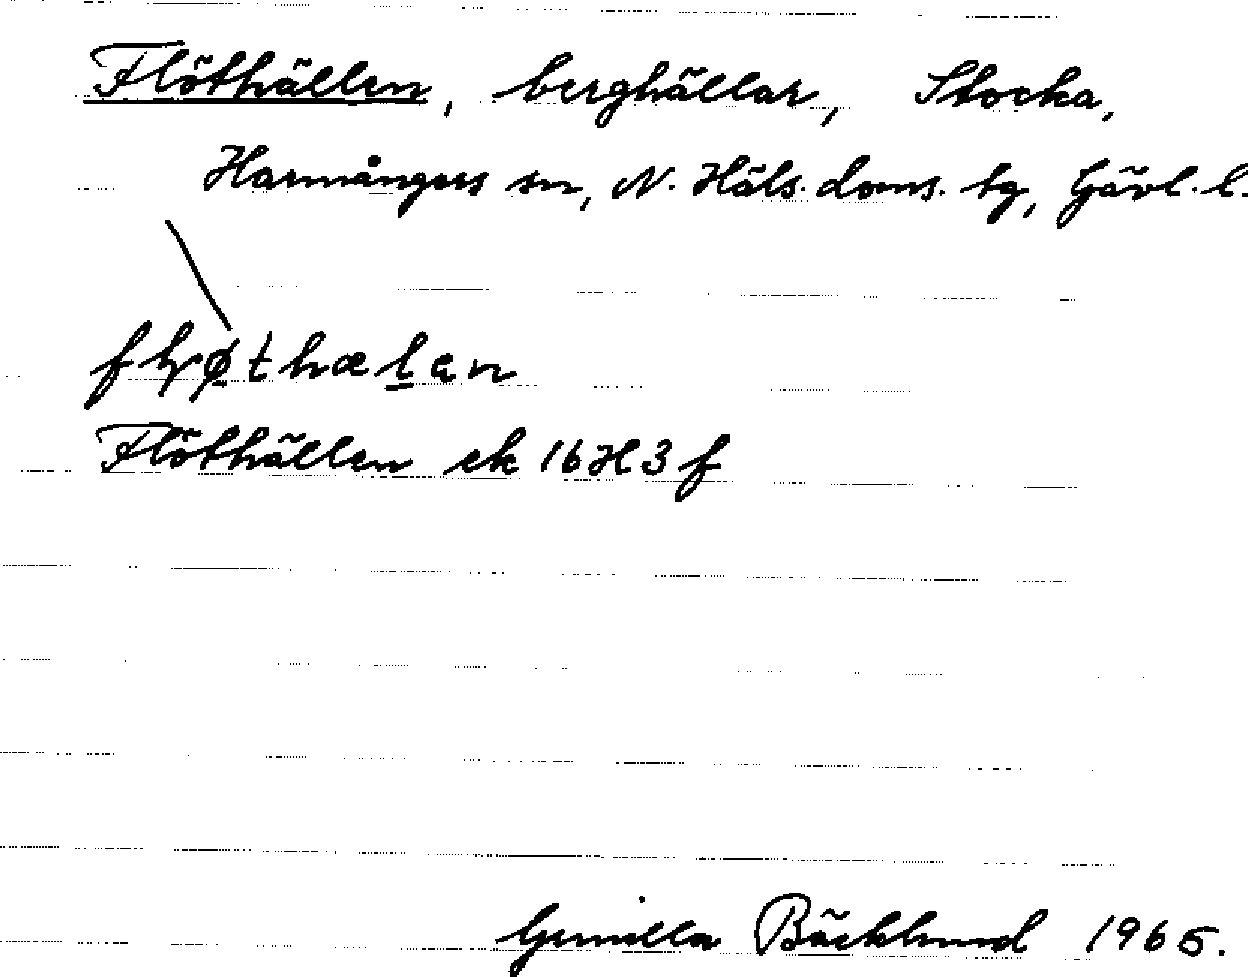 Flöthällen, berghällar, Stocka,
Harmångers sn, N. Häls. doms. tg, Gävl. l.
Flöthällen ek 16H3f
Gunilla Bäcklund 1965.